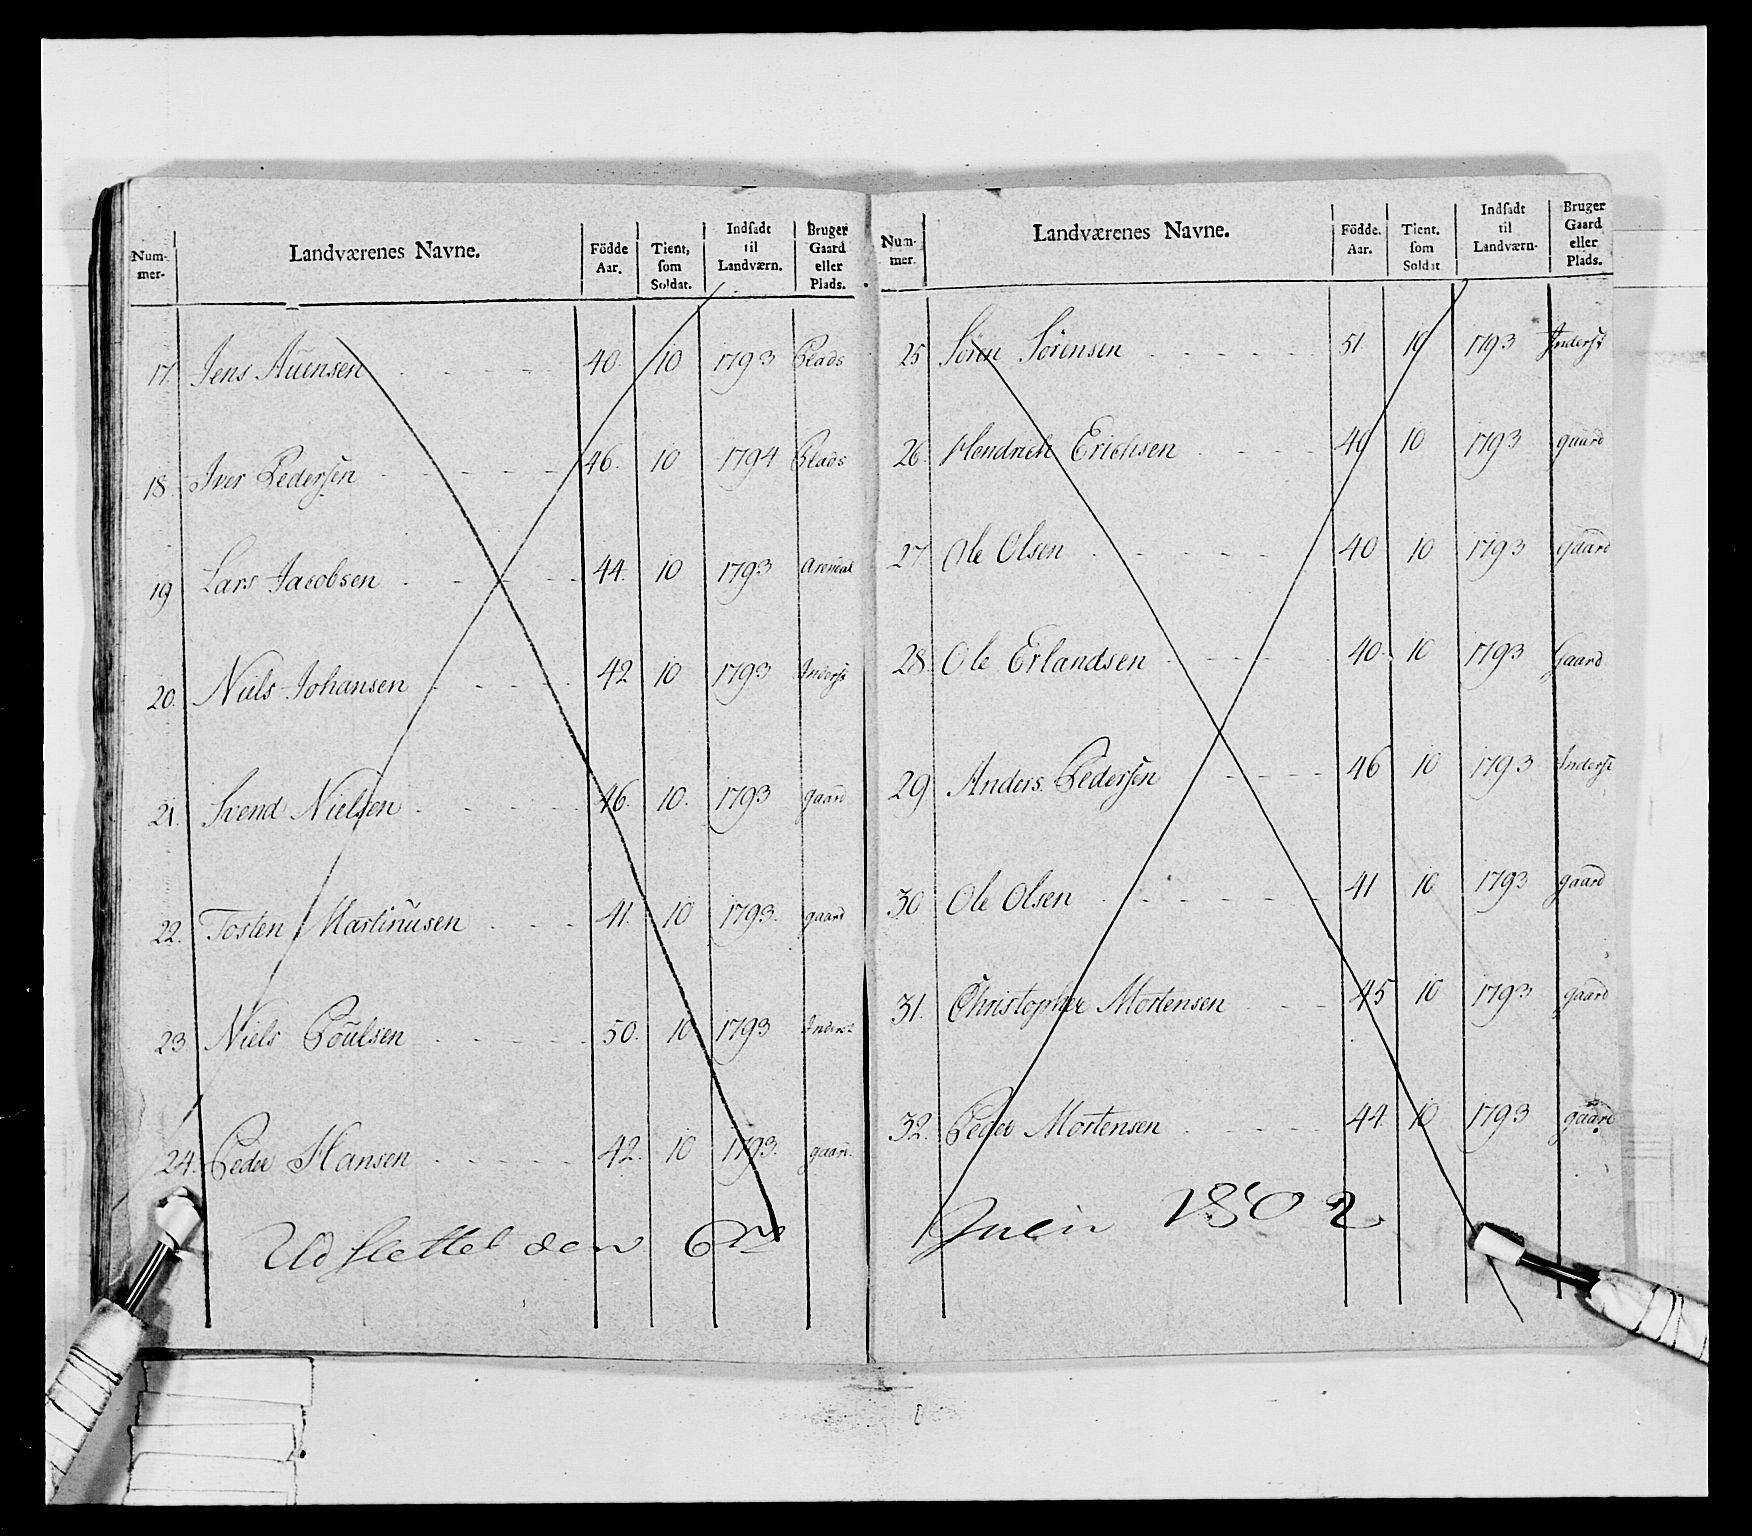 Num-
mer.
Landværenes Navne.
Födde
Aar.
Tient,
som
Soldat.
Indsadt
til
Landværn.
Bruger
Gaard
eller
Plads.
17. Jens Auensen 40. 10 1793 Plads
18 Iver Pedersen 46. 10 1794 Plads
19 Lars Jacobsen 44. 10 1793 Arendal
20. Niels Johansen 42 10 1793 Inderst
21. Svend Nielsen 46. 10. 1793 gaard
22. Tosten Martinusen 41. 10 1793. gaard
23. Niels Poulsen 50. 10 1793
24. Peder Hansen 42. 10 1793. gaard
Udslettet den 6te
Num-
mer.
Landværenes Navne.
Födde.
Aar.
Tient.
som
Soldat
Indsadt
til
Landværn.
Bruger
Gaard
eller
Plads.
25 Sören Sörensen 51 10 1793 Inderst
26. Hendrich Erichsen 10 1793 gaard
27 Ole Olsen 40 10 1793 gaard
28. Ole Erlandsen 40. 10 1793 Gaard
29 Anders Pedersen 46 10 1793 Inderst
30 Ole Olsen 41 10 1793 gaard
31. Christopher Mortensen 45 10 1793 gaard
32. Peder Mortensen 44. 10 1793 gaard
Junii 1802